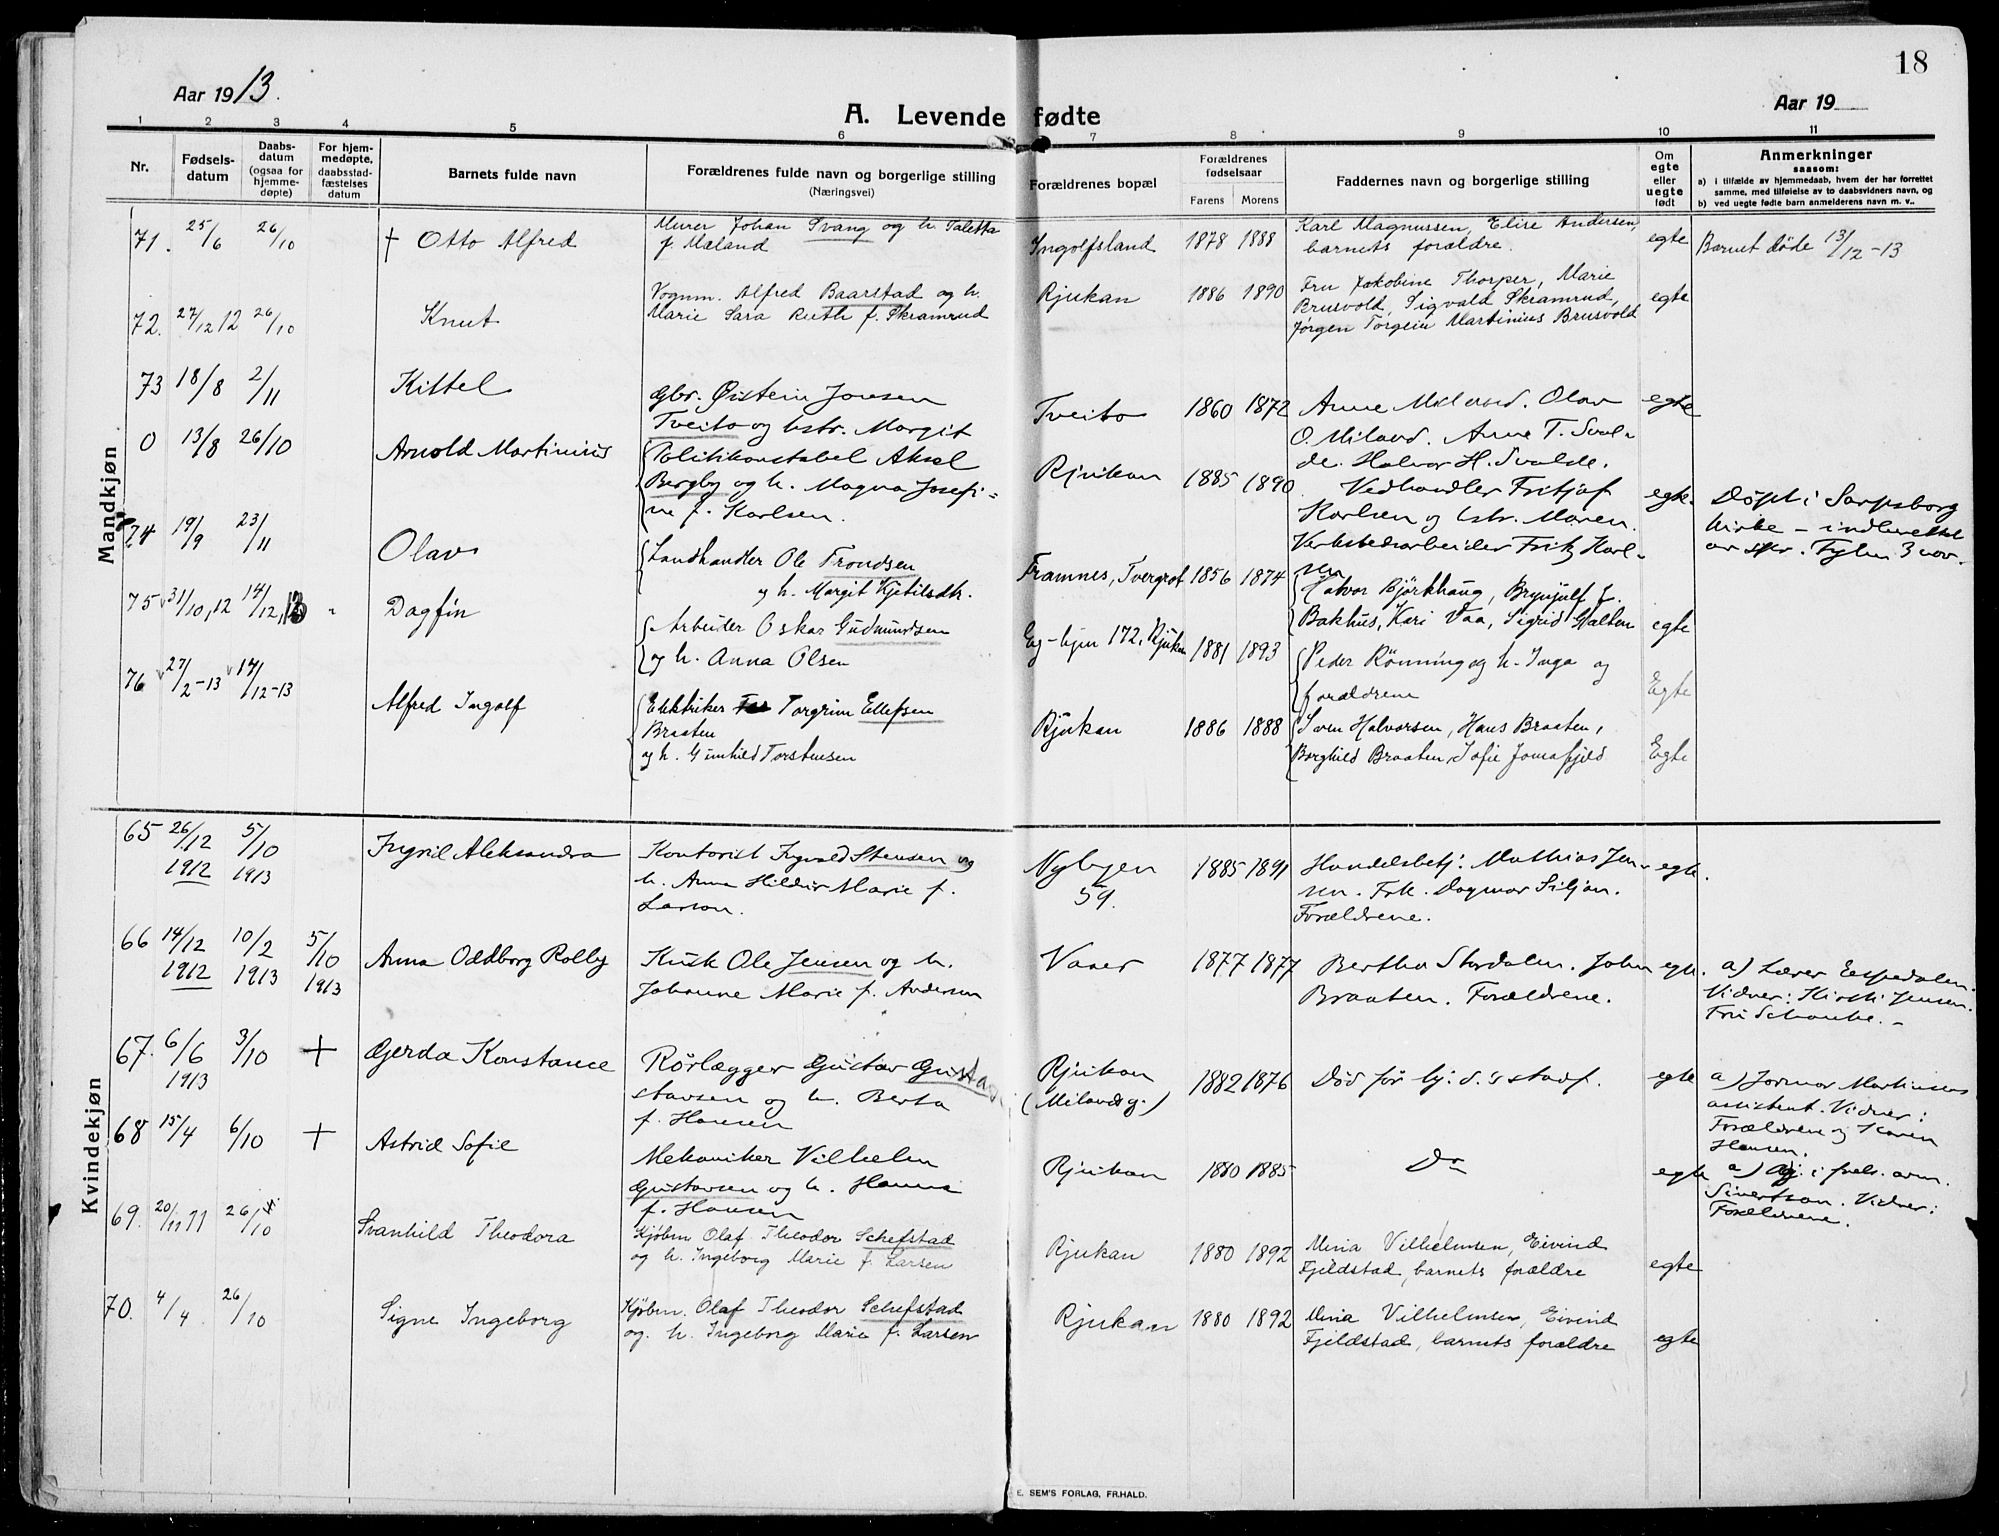 18
Aar 1913.
Aar 19
A. Levende fødte
1 2 3 4 5 6 7 8 9 10 11
Nr.
Fødsels-
datum
Daabs-
datum
(ogsaa for
hjemme-
døpte)
For hjem-
medøpte,
daabsstad-
fæstelses
datum
Barnets fulde navn
Forældrenes fulde navn og borgerlige stilling
(Næringsvei)
Forældrenes bopæl
Forældrenes
fødselsaar
Farens Morens
Faddernes navn og borgerlige stilling
Om
egte
eller
uegte
født
Anmerkninger
saasom:
a) i tilfælde av hjemmedaab, hvem der har forrettet
samme, med tilføielse av to daabsvidners navn, og
b) ved uegte fødte barn anmelderens navn m. v..
Mandkjøn
71. 25/6 26/10 † Otto Alfred
Murer Johan Svang og h. Taletta
f. Mæland
Ingolfsland 1878 1888
Karl Magnussen, Elise Andersen,
barnets forældre.
egte
Barnet døde 13/12-13
72. 27/12 12 26/10 Knut
Vognm. Alfred Baarstad og h.
Marie Sara Ruth f. Skramrud
Rjukan 1886 1890
Fru Jakobine Thorper, Marie
Brusvold, Sigvald Skramrud,
Jørgen Torgeir Martinius Brusvold
egte
73 18/8 2/11 Kittel
Gbr. Øistein Jonsen
Tveito og hstr. Margit
Tveito 1860 1872
Anne Miland. Olav
O. Miland. Anne T. Sval-
de. Halvor H. Svalde.
egte
0 13/8 26/10 Arnold Martinius
Politikonstabel Aksel
Bergby og h. Magna Josefi-
ne f. Karlsen.
Rjukan 1885 1890
Vedhandler Fritjof
Karlsen og hstr. Maren.
Verkstedsarbeider Fritz Karl-
sen
egte.
Døpt i Sarpsborg
kirke – indberettet
av spr. Fylin 3 nov.
74 19/9 23/11 Olav
Landhandler Ole Trondsen
og h. Margit Kjetilsdtr.
Framnes, Tvergrot 1856 1874
Halvor Bjørkhaug, Brynjulf J.
Bakhus, Kari Vaa, Sigrid Galten
egte
75 31/10,12 14/12,13 " Dagfin
Arbeider Oskar Gudmundsen
og h. Anna Olsen
Eg-byen 172, Rjukan 1881 1893
Peder Rønning og h. Inga og
forældrene
Egte
76 27/2-13 14/12-13 Alfred Ingolf
Elektriker Torgrim Ellefsen
Braaten
og h. Gunhild Torstensen
Rjukan 1886 1888
Sven Halvorsen, Hans Braaten,
Borghild Braaten, Sofie Jomasfjeld
Egte
Kvindekjøn
65 26/12 1912 5/10 1913 Ingrid Aleksandra
Kontorist Ingvald Stensen og
h. Anna Hildur Marie f.
Larson.
Nybyen
59.
1885 1891
Handelsbetj. Mathias Jen-
sen. Frk. Dagmar Siljan.
Forældrene.
egte.
66 14/12 1912 10/2 1913 5/10 1913 Anna Oddborg Rolby
Kusk Ole Jensen og h.
Johanne Marie f. Andersen
Vaaer 1877 1877
Bertha Stordalen. John
Braaten. Forældrene.
egte.
a) Lærer Espedalen.
Vidner: Kirsti Jensen.
Fru Schanke. –
67. 6/6 1913 3/10 + Gerda Konstance
Rørlægger Gustav Gusta
stavsen og h. Berta
f. Hansen
Rjukan
(Milandsg.)
1882 1876
Død før hj. d.'s stadf.
egte
a) Jormor Martinsens
assistent. Vidner:
Forældrene og Karen
Hansen.
68 15/4 6/10 + Astrid Sofie
Mekaniker Vilhelm
Gustavsen og h. Hanna
f. Hansen
Rjukan 1880 1885
Do
egte
a) Adj. i frels. arm.
Sivertson. Vidner:
Forældrene.
69. 20/11 11 26/10 Svanhild Theodora
Kjøbm Olaf Theodor Schefstad
og h. Ingeborg Marie f. Larsen
Rjukan 1880 1892
Mina Vilhelmsen, Eivind
Fjeldstad, barnets forældre
egte
70. 4/4 26/10 Signe Ingeborg
Kjøbm. Olaf Theodor Schefstad
og. h. Ingeborg Marie f. Larsen
Rjukan 1880 1892
Mina Vilhelmsen, Eivind
Fjeldstad, barnets forældre
egte
E. SEM'S FORLAG, FR.HALD.